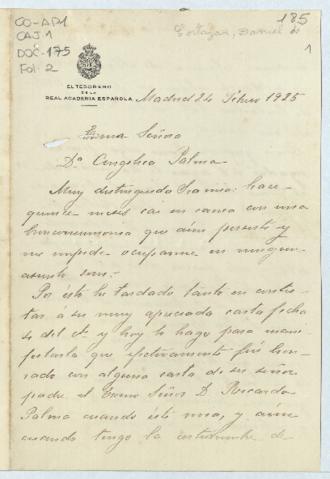 CO-AP1
CAJ.1
DOC.175
Fol. 2
185
Cortázar, Daniel de
1
EL TESORERO
DE LA
REAL ACADEMIA ESPAÑOLA
Madrid 24 Febro 1925
Exma Señora
Da Angelica Palma
Muy distinguida Sra mia: hace
quince meses caí en cama con una
bronconeumonia que aún persiste y
me impide ocuparme en ningún
asunto
Por esto he tardado tanto en contes-
tar á su muy apreciada carta fecha
de del cte y hoy lo hago para mani-
festarle que efectivamente fuí hon-
rado con alguna carta de su señor
padre el Exmo Señor D. Ricardo
Palma cuando éste vivia, y aún
cuando tengo la costumbre de